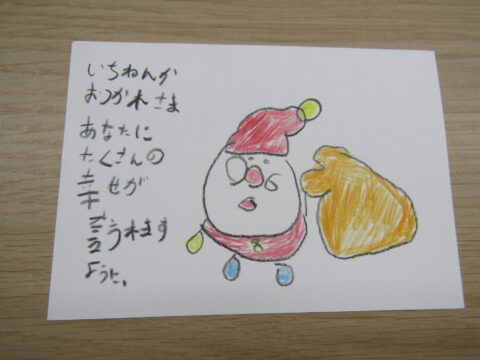 いちねんか
おつかれさま
あなたに
たくさんの
幸せが
言うれます
ように。